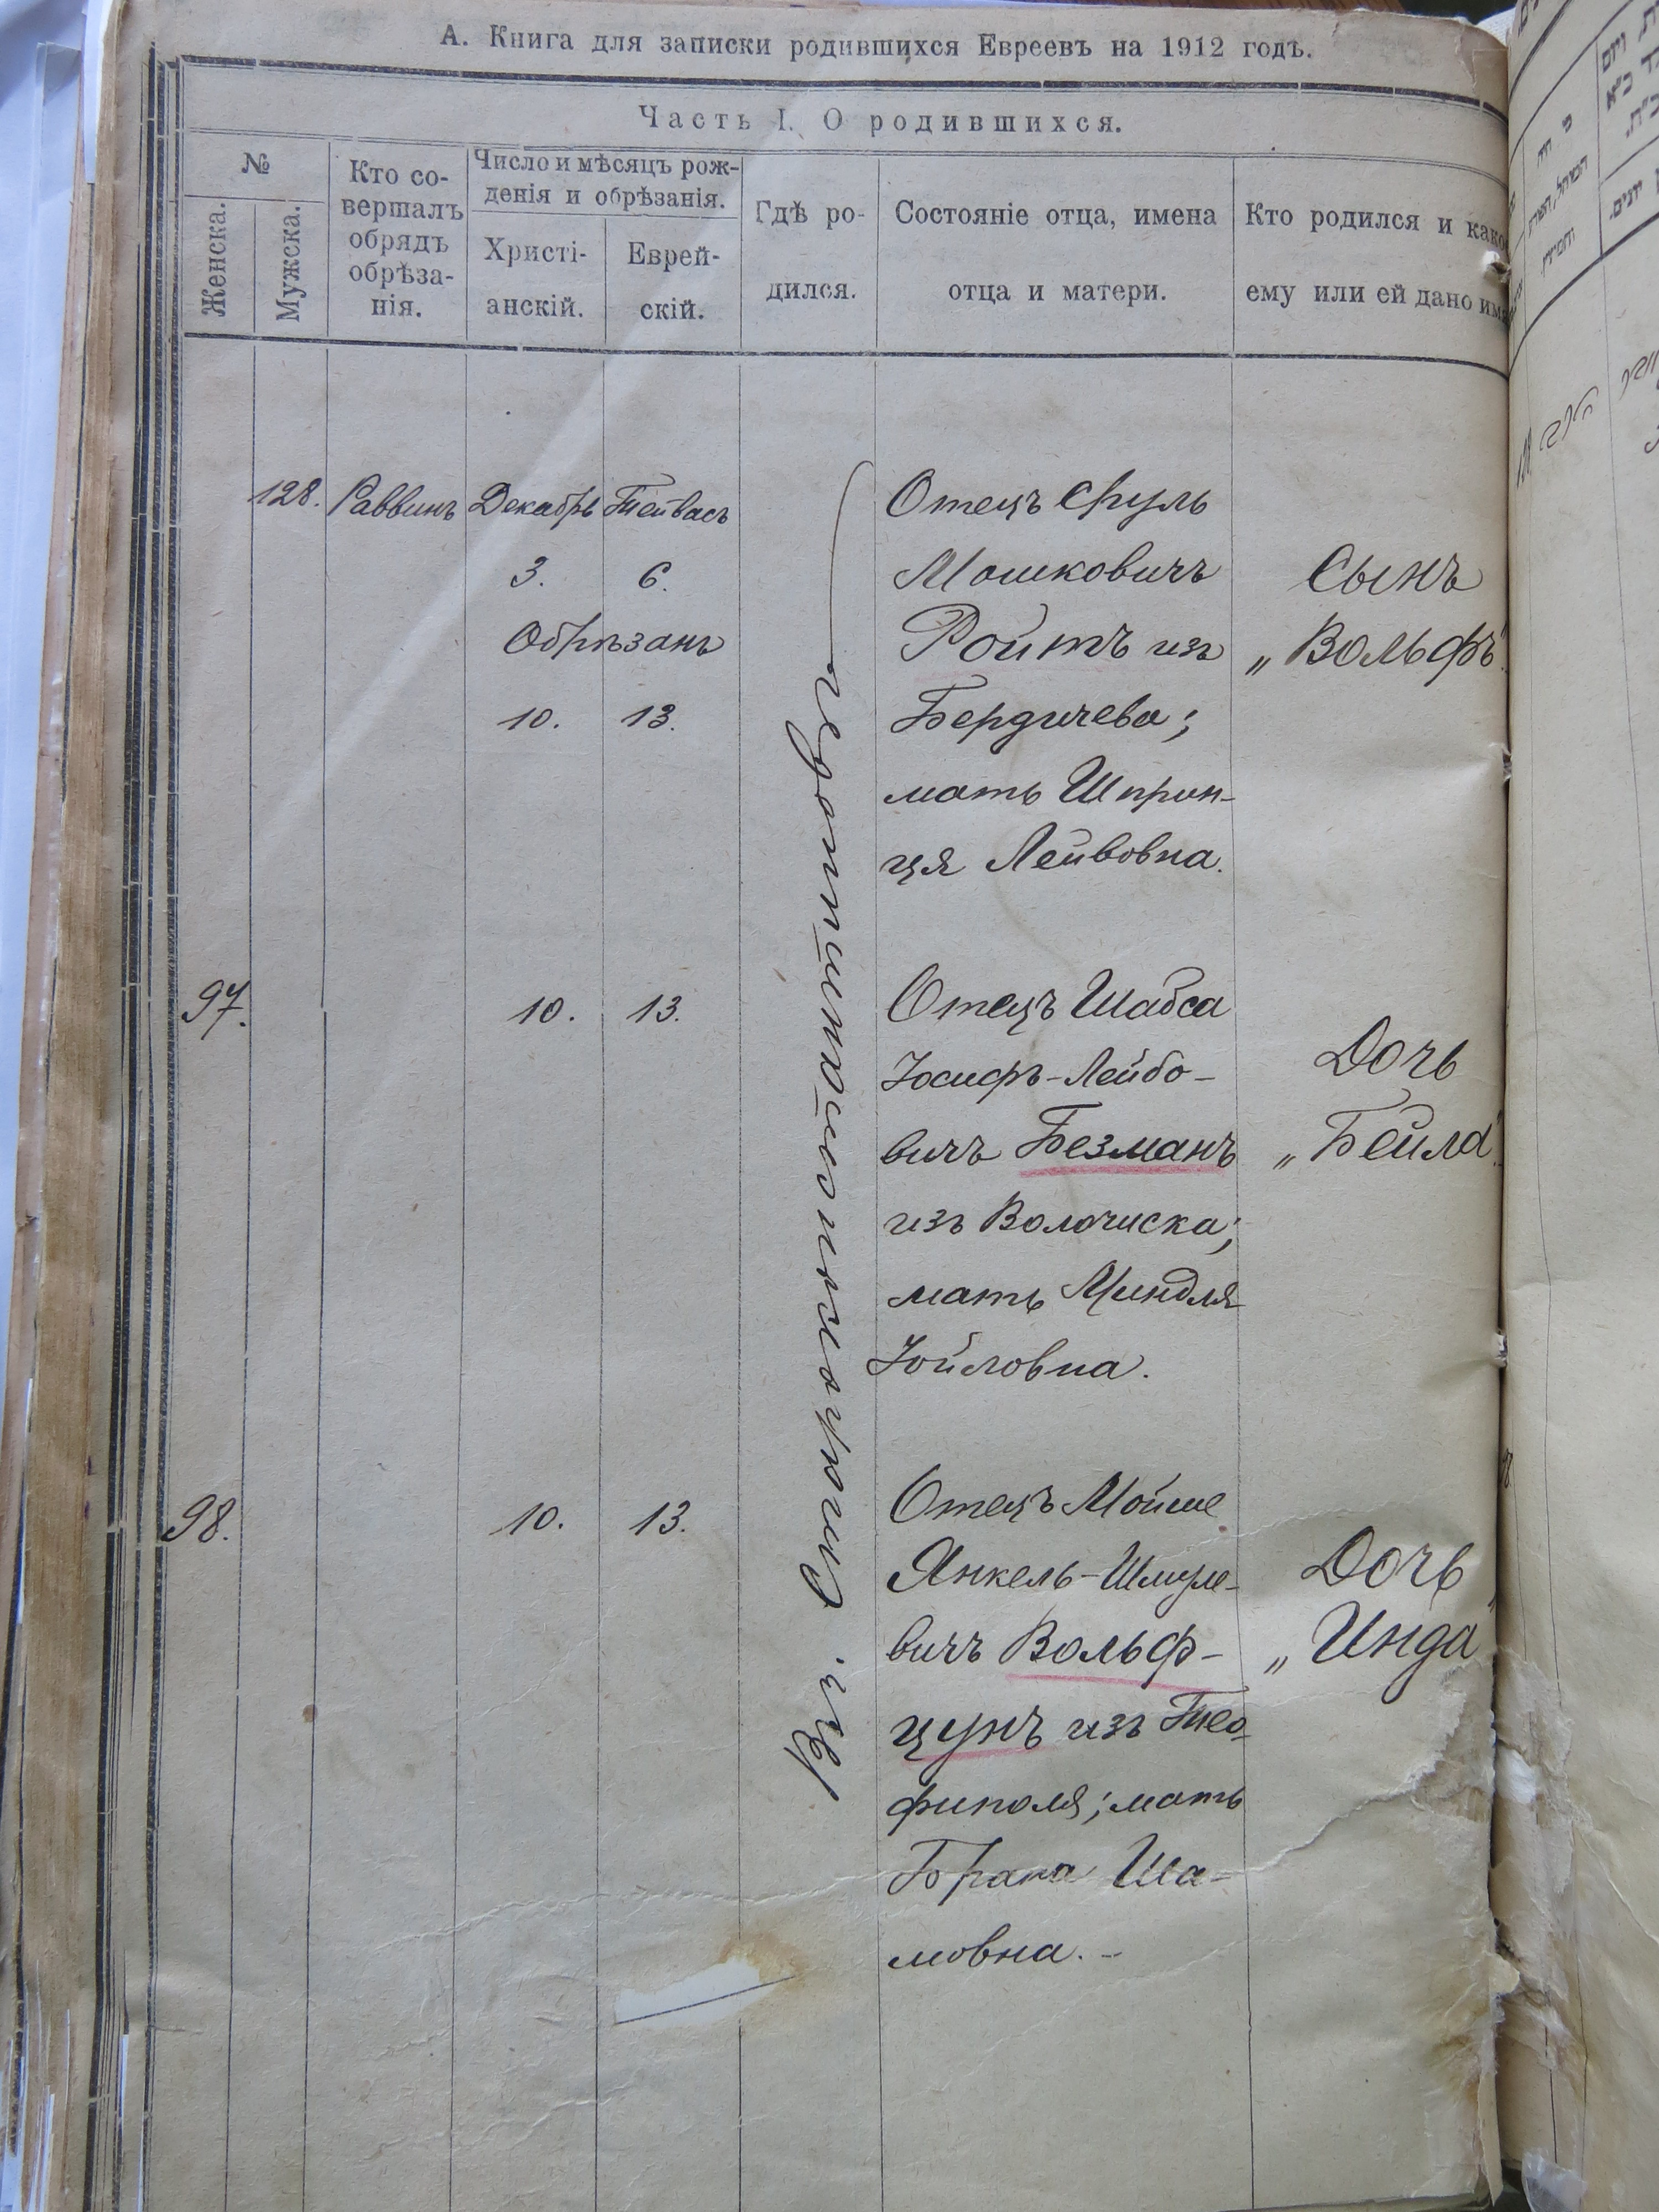 А. Книга для записки родившихся Евреевъ на 1912 годъ.
Часть I. О родившихся.
№
Женска.
Мужска.
Кто со-
вершалъ
обрядъ
обрѣза-
нія.
Число и мѣсяцъ рож-
денія и обрѣзанія.
Христі-
анскій.
Еврей-
скій.
Гдѣ ро-
дился.
Состояніе отца, имена
отца и матери.
Кто родился и како
ему или ей дано имя
128. Раввинъ Декабрь Тейвасъ
3. 6.
Обрѣзанъ
10. 13.
Отецъ Сруль
Мошковичъ
Ройтъ изъ
Бердичева;
мать Шприн-
ця Лейвовна.
Сынъ
„Вольфъ“
97. 10. 13.
Отецъ Шабса
Іосифъ-Лейбо-
вичъ Безманъ
изъ Волочиска;
мать Миндля
Іойловна.
Дочь
„Бейла“
98. 10. 13.
Отецъ Мойше
Янкель-Шмуле-
вичъ Вольф-
цунъ изъ Тео-
фиполя; мать
Брана Ша-
мовна.
Дочь
„Инда“